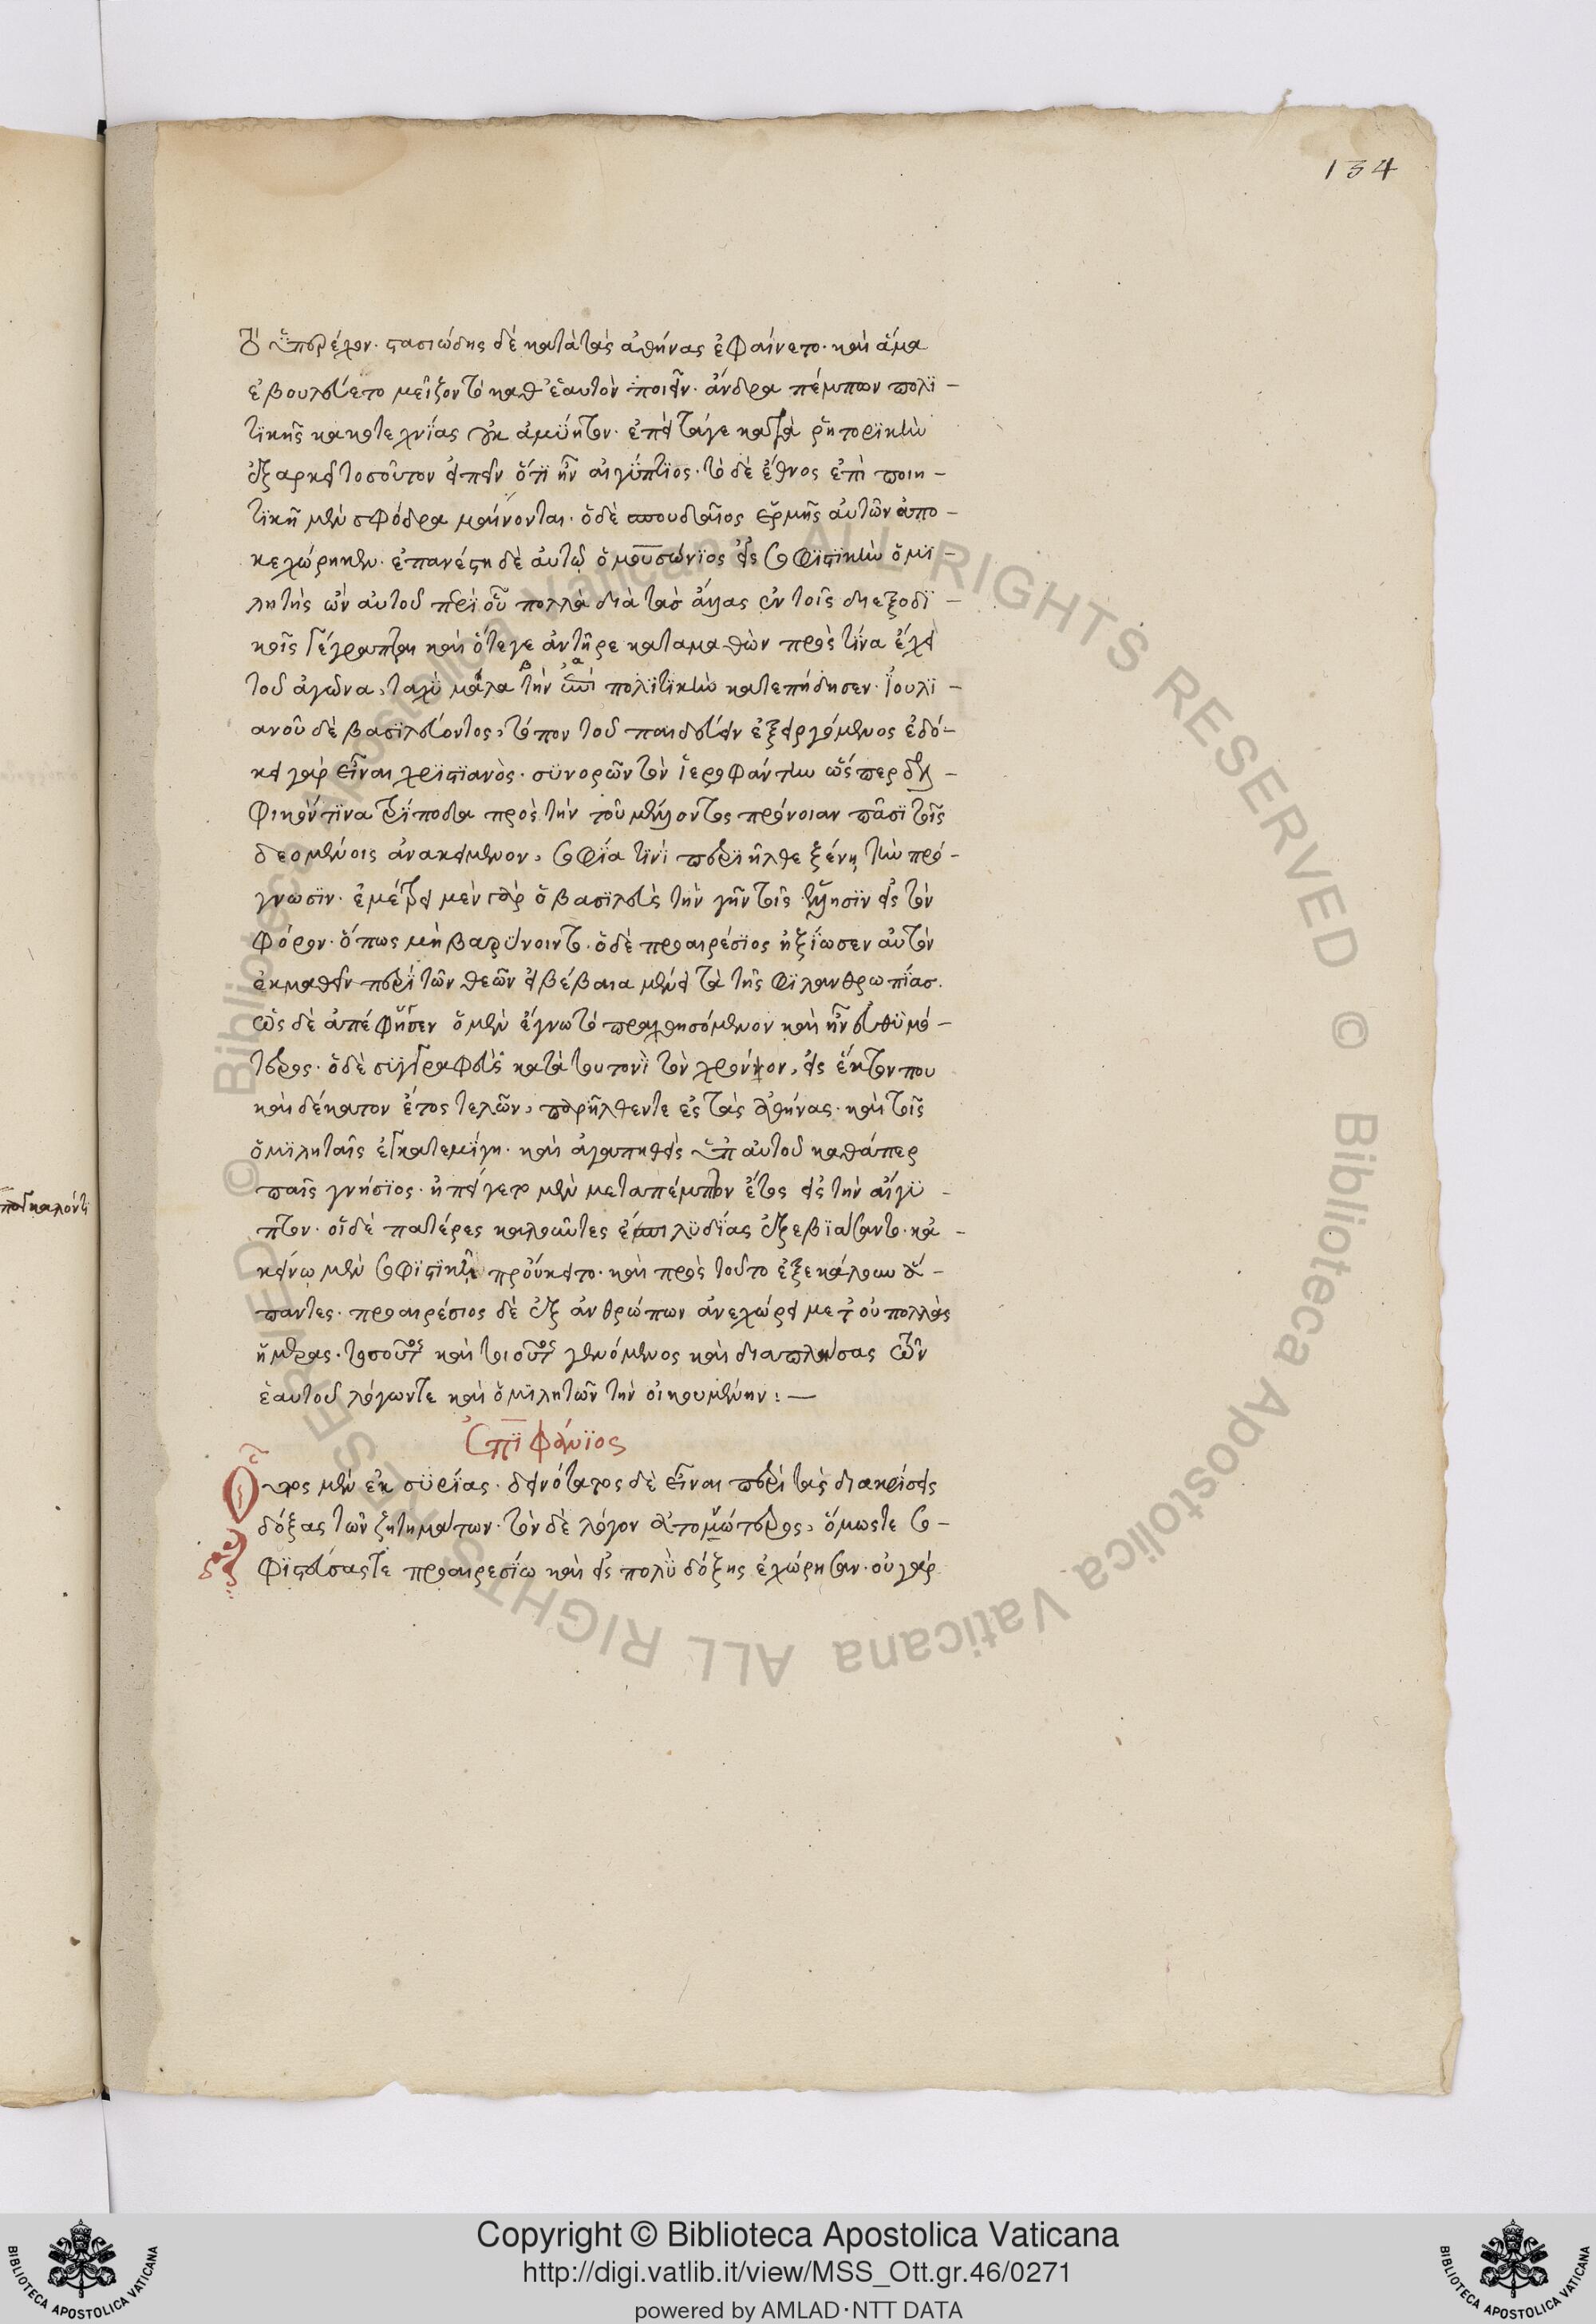 134
τὸ ὑπερέχον. στασιώδης δὲ κατὰ τὰς ἀθήνας ἐφαίνετο. καὶ ἅμα
ἐβουλεύετο μεῖζον τὸ καθ' ἑαυτὸν ποιεῖν. ἄνδρα πέμπων πολϊ-
τϊκῆς κακοτεχνΐας οὐκ ἀμύητον. ἐπεὶ τάγε κατὰ ῥητορϊκὴν
ἐξαρκεῖ τοσοῦτον εἰπεῖν ὅτϊ ἦν αἰγύπτϊος. τὸ δὲ ἔθνος ἐπὶ ποιη-
τϊκῇ μὲν σφόδρα μαίνονται. ὁ δὲ σπουδαῖος ἑρμῆς αὐτῶν ἀπο-
κεχώρηκεν. ἐπανέστη δὲ αὐτῷ ὁ μουσώνϊος εἰς σοφϊστϊκὴν ὁμϊ-
λητὴς ὢν αὐτοῦ περὶ οὗ πολλὰ διὰ τὰσ ἄλλας ἐν τοῖς διεξοδϊ-
κοῖς γέγραπται καὶ ὅτεγε ἀντῆρε καταμαθὼν πρὸς τίνα ἔχει
τοῦ ἀγῶνα, ταχὺ μάλα τὴν ἐπὶ πολϊτϊκὴν κατεπήδησεν. ϊουλϊ-
ανοῦ δὲ βασϊλεύοντος, τόπον τοῦ παιδεύειν ἐξειργόμενος ἐδό-
κει γὰρ εἶναι χρϊστϊανὸς. σϋνορῶν τὸν ἱεροφάντην ὥσπερ δελ-
φικόν τϊνα τρίποδα πρὸς τὴν τοῦ μέλλοντος πρόνοιαν πᾶσϊ τοῖς
δεομένοις ἀνακείμενον, σοφΐα τϊνὶ περϊῆλθε ξένῃ τὴν πρό-
γνωσϊν. ἐμέτρει μὲν γὰρ ὁ βασϊλεὺς τὴν γῆν τοῖς ἕλλησϊν εἰς τὸν
φόρον. ὅπως μὴ βαρύνοιντο. ὁ δὲ προαιρέσϊος ἠξΐωσεν αὐτὸν
ἐκμαθεῖν περὶ τῶν θεῶν εἰ βέβαια μένει τὰ τῆς φϊλανθρωπΐασ.
ὡς δὲ ἀπέφησεν ὁ μὲν ἔγνω τὸ πραχθησόμενον καὶ ἦν εὐθϋμό-
τερος. ὁ δὲ συγγραφεὺς κατὰ τουτονὶ τὸν χρόνον, εἰς ἕκτον που
καὶ δέκατον ἔτος τελῶν, παρῆλθεντε ἐς τὰς ἀθήνας. καὶ τοῖς
ὁμϊληταῖς ἐγκατεμΐγη. καὶ ἀγαπηθεὶς ὑπ αὐτοῦ καθάπερ
παῖς γνήσϊος. ἠπείγετο μὲν μετα πέμπτον ἔτος εἰς τὴν αἴγϋ-
πτον. οἱ δὲ πατέρες καλοῦντες ἐπὶ λϋδΐας ἐξεβϊάσαντο. κἀ-
κείνῳ μὲν σοφϊστϊκὴ προὔκειτο. καὶ πρὸς τοῦτο ἐξεκάλουν ἅ-
παντες. προαιρέσιος δὲ ἐξ ἀνθρώπων ἀνεχώρει μετ οὐ πολλὰς
ἡμέρας. τοσοῦτος καὶ τοιοῦτος γενόμενος καὶ διαπλήσας τῶν
ἑαυτοῦ λόγωντε καὶ ὁμϊλητῶν τὴν οἰκουμένην:—
Ἐπϊφάνϊος
Οὗτος μὲν ἐκ σϋρΐας. δεινότατος δὲ εἶναι περὶ τὰς διακρίσεις
δόξας τῶν ζητημάτων. τὸν δὲ λόγον ἀτονώτερος, ὅμωςτε σο-
φϊστεύσαςτε προαιρεσΐω καὶ εἰς πολὺ δόξης ἐχώρησαν. οὐ γάρ
Copyright © Biblioteca Apostolica Vaticana
http://digi.vatlib.it/view/MSS_Ott.gr.46/0271
powered by AMLAD·NTT DATA